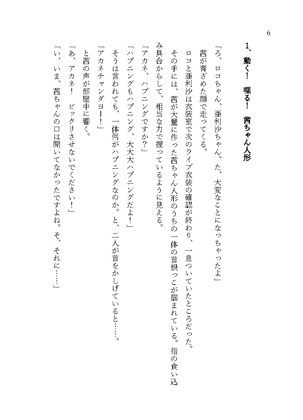 6
1、動く！　喋る！　茜ちゃん人形
「ろ、ロコちゃん、亜利沙ちゃん。た、大変なことになっちゃったよ」
茜が青ざめた顔で走ってくる。
ロコと亜利沙は衣装室で次のライブ衣装の確認が終わり、一息ついていたところだった。
その手には、茜が大量に作った茜ちゃん人形のうちの一体の首根っこが掴まれている。指の食い込
み具合からして、相当な力で握っているように見える。
「アカネ、ハプニングですか？」
「ハプニングもハプニング、大大大ハプニングだよ！」
そうは言われても、一体何がハプニングなのか。と、二人が首をかしげていると……。
「アカネチャンダヨー！」
と茜の声が部屋中に響く。
「あ、アカネ！　ビックリさせないでください！」
「い、いま、茜ちゃんの口は開いてなかったですよね。そ、それに……」